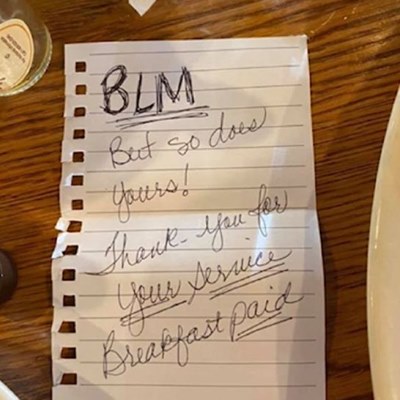 BLM
But so does
yours!
Thank-you for
your service
Breakfast paid